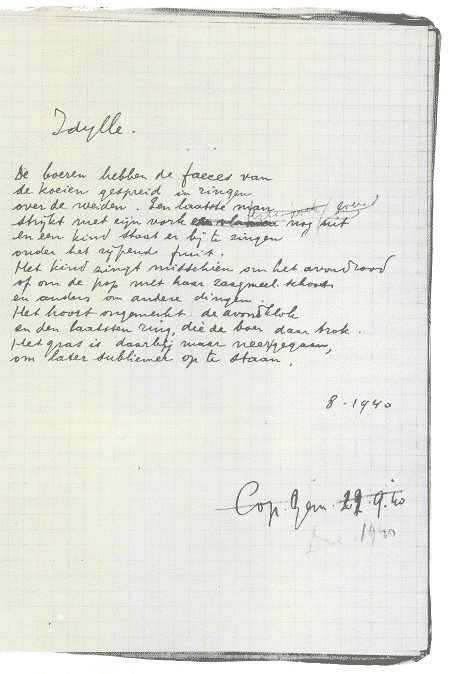 Idylle.
De boeren hebben de faeces van
de koeien gespreid in ringen
over de weiden. Een laatste man
strijkt met zijn vork nog uit
en een kind staat er bij te zingen
onder het rijpend fruit.
Het kind zingt misschien om het avondrood
of om de pop met haar zaagmeel-schoot
en anders om andere dingen.
Het hoort ongemerkt de avondklok
en den laatsten ring, die de boer daar trok.
Het gras is daarbij maar neergegaan,
om later sublimer op te staan.
8-1940
Cop. Gem. 22.9.40
Dec. 1940